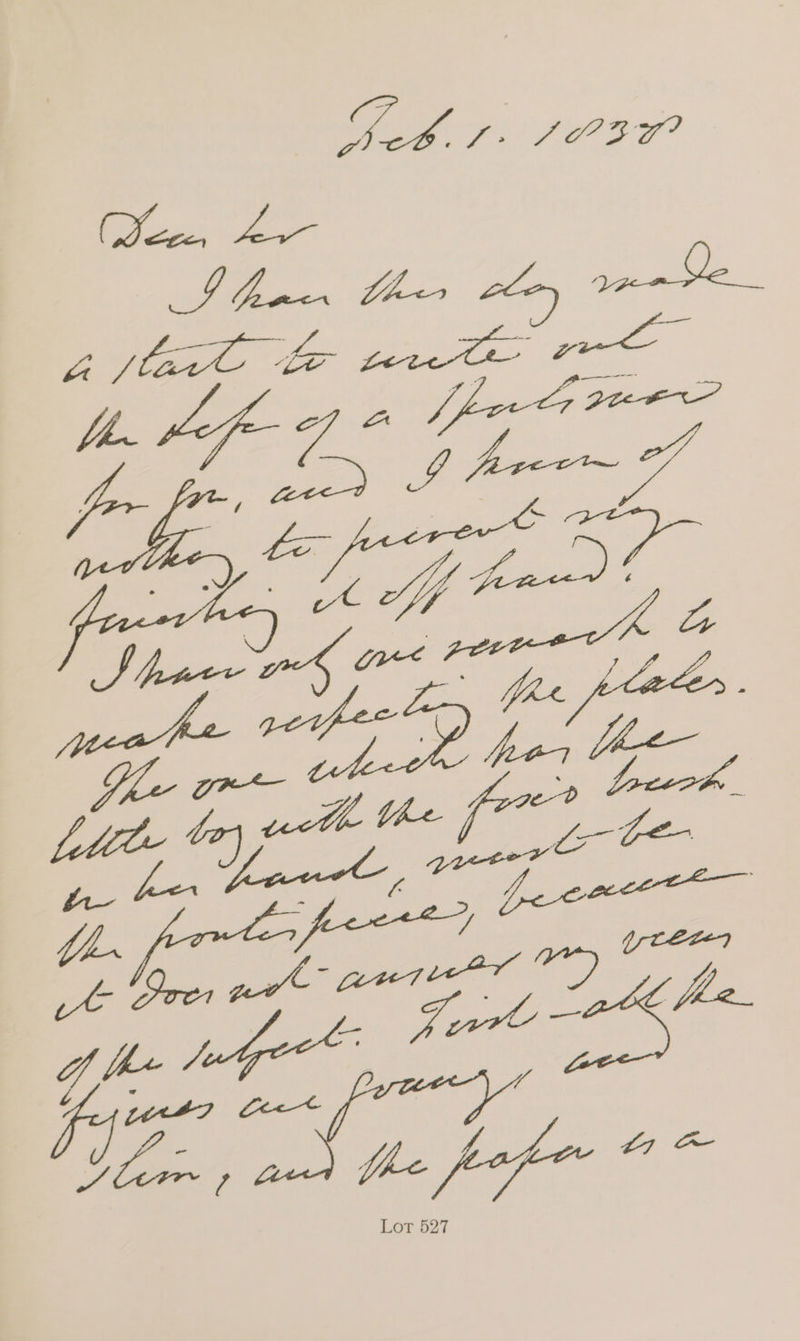 Feb. 1. 1838
Dear Sir
I have this day made
a start to write out
the life of a Sportsman
for you, and I know of
nothing to prevent my
finishing it off hand.
I have but one remark to
make respecting the plates.
The one which has the
little boy with the fox's brush
in his hand, must be
the frontispiece, because
it does not answer my view
of the subject. First — all the
figures are
and the paper is a
Lot 527